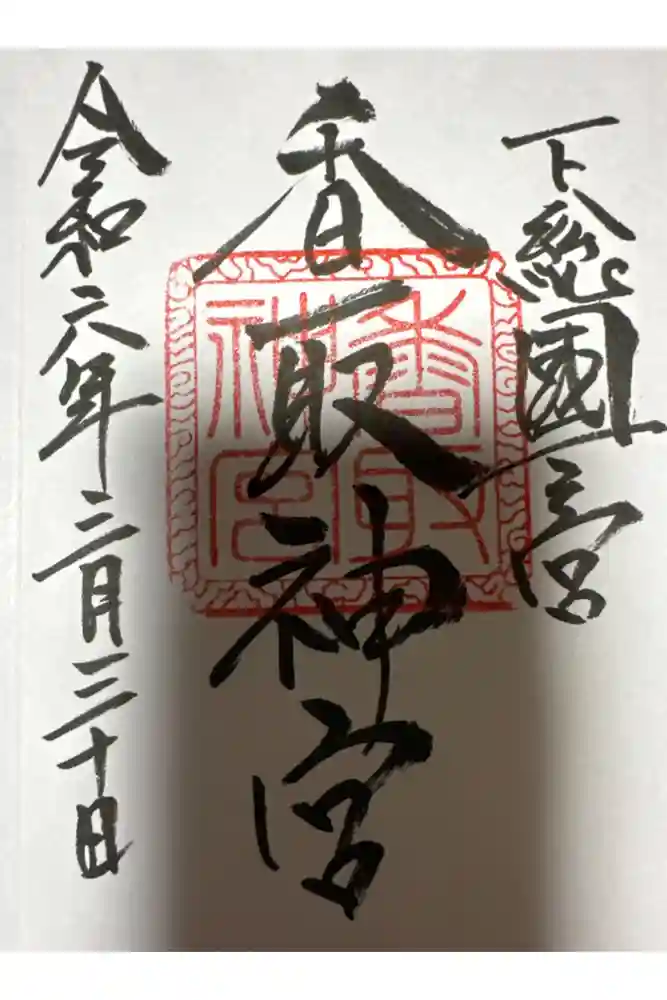 下総國一宮
香取神宮
香取神宮
令和六年三月三十日